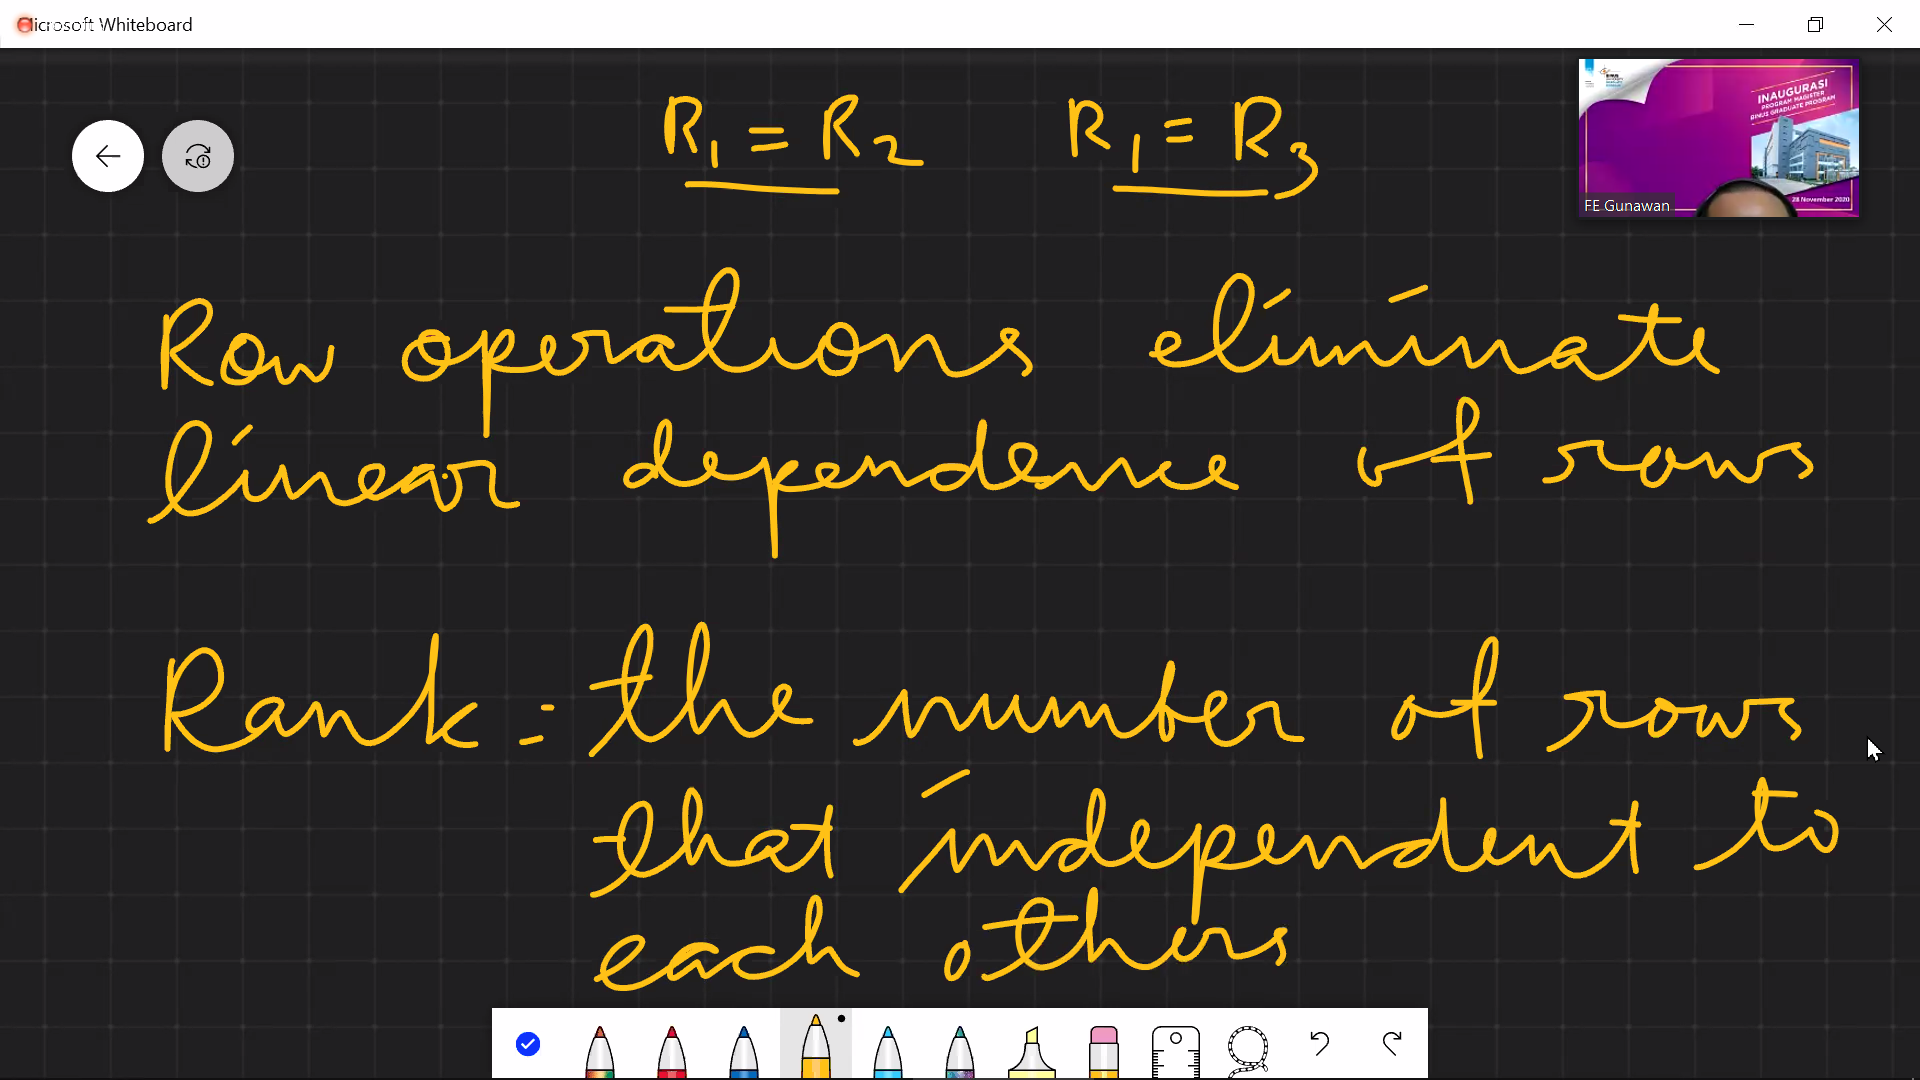 Microsoft Whiteboard
INAUGURASI
PROGRAM MAGISTER
BINUS GRADUATE PROGRAM
28 November 2020
FE Gunawan
R₁ = R₂ R₁ = R₃
Row operations eliminate
linear dependence of rows
Rank = the number of rows
that independent to
each others